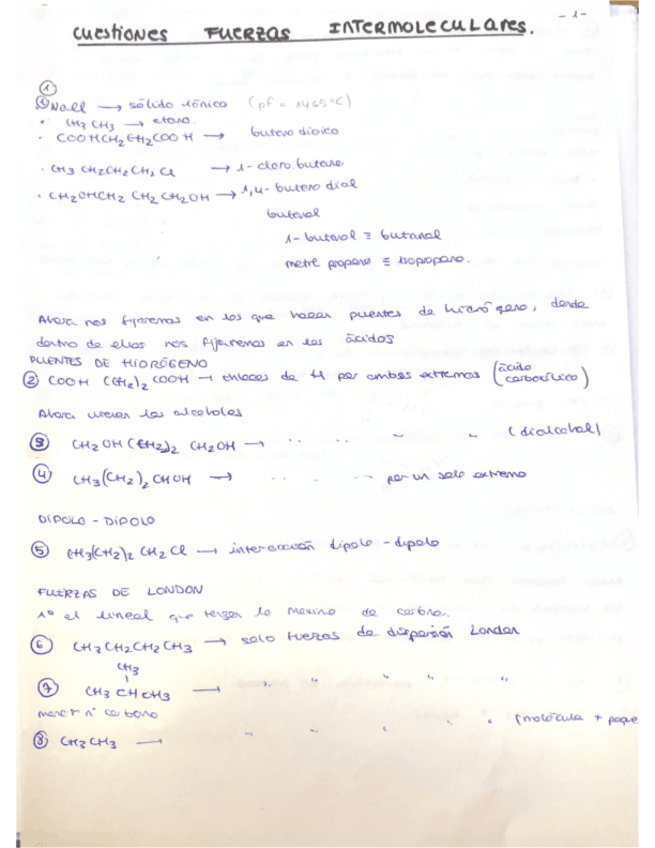 -1-
CUESTIONES FUERZAS INTERMOLECULARES.
①
① NaCl → sólido iónico (pf = 1465°C)
· CH3 CH3 → etano.
· COOHCH2CH2COOH → butano dioico
· CH3 CH2CH2CH2Cl → 1-cloro butano
· CH2OHCH2 CH2 CH2OH → 1,4-butano diol
butanol
1-butanol ≡ butanol
metil propano ≡ isopropano.
Ahora nos fijaremos en los que hacen puentes de hidrógeno, donde
dentro de ellos nos fijaremos en los ácidos
PUENTES DE HIDRÓGENO
② COOH (CH2)2 COOH → enlaces de H por ambos extremos (ácido carboxílico)
Ahora los alcoholes
③ CH2OH(CH2)2 CH2OH → " " " " (dialcohol)
④ CH3(CH2)2 CHOH → " " " por un solo extremo
DIPOLO - DIPOLO
⑤ CH3(CH2)2 CH2Cl → interacción dipolo-dipolo
FUERZAS DE LONDON
1º el lineal que tengan lo maximo de carbono.
⑥ CH3CH2CH2CH3 → solo fuerzas de dispersión London
CH3
|
⑦ CH3 CH CH3 → " " " " "
menor nº carbono
⑧ CH3CH3 → " " " " (molécula + peque